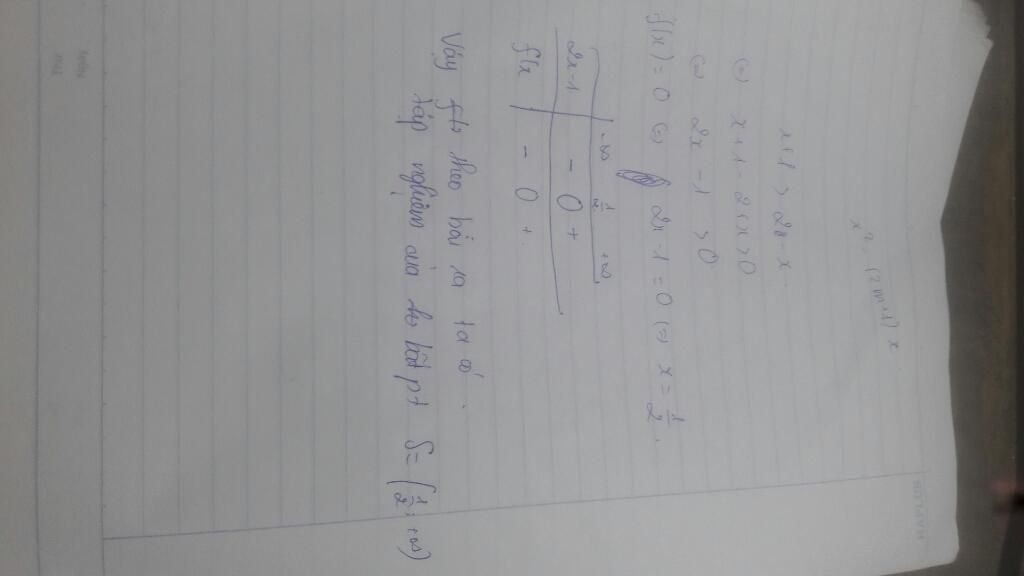 x² - (2m+1) x
x+1 > 2 - x
(=) x+1 - 2 + x > 0
(=) 2x - 1 > 0
f(x) = 0 (=) 2x - 1 = 0 (=) x = 1/2.
-∞ 1/2 +∞
2x-1 - 0 +
f(x - 0 +.
Vậy theo bài ra ta có
tập nghiệm của bất pt S = (1/2; +∞)